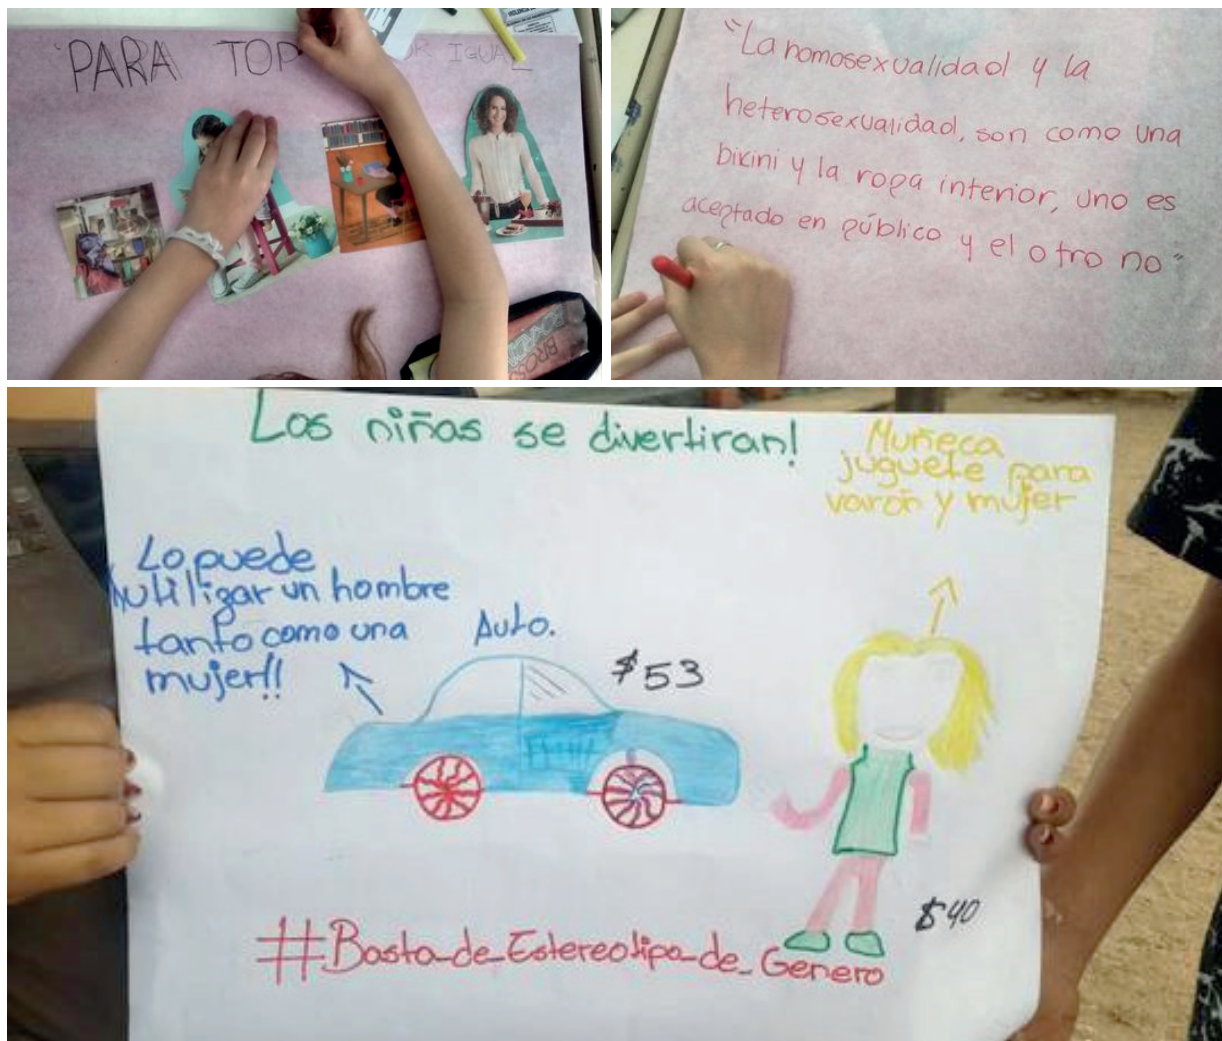 "PARA TOD OR IGUAL
BROS
"La homosexualidad y la
heterosexualidad, son como una
bikini y la ropa interior, uno es
aceptado en público y el otro no"
Los niñas se divertiran!
Muñeca
juguete para
varón y mujer
Lo puede
utiligar un hombre
tanto como una
mujer!!
Auto.
$53
$40
#Basta_de_Estereotipo_de_Genero